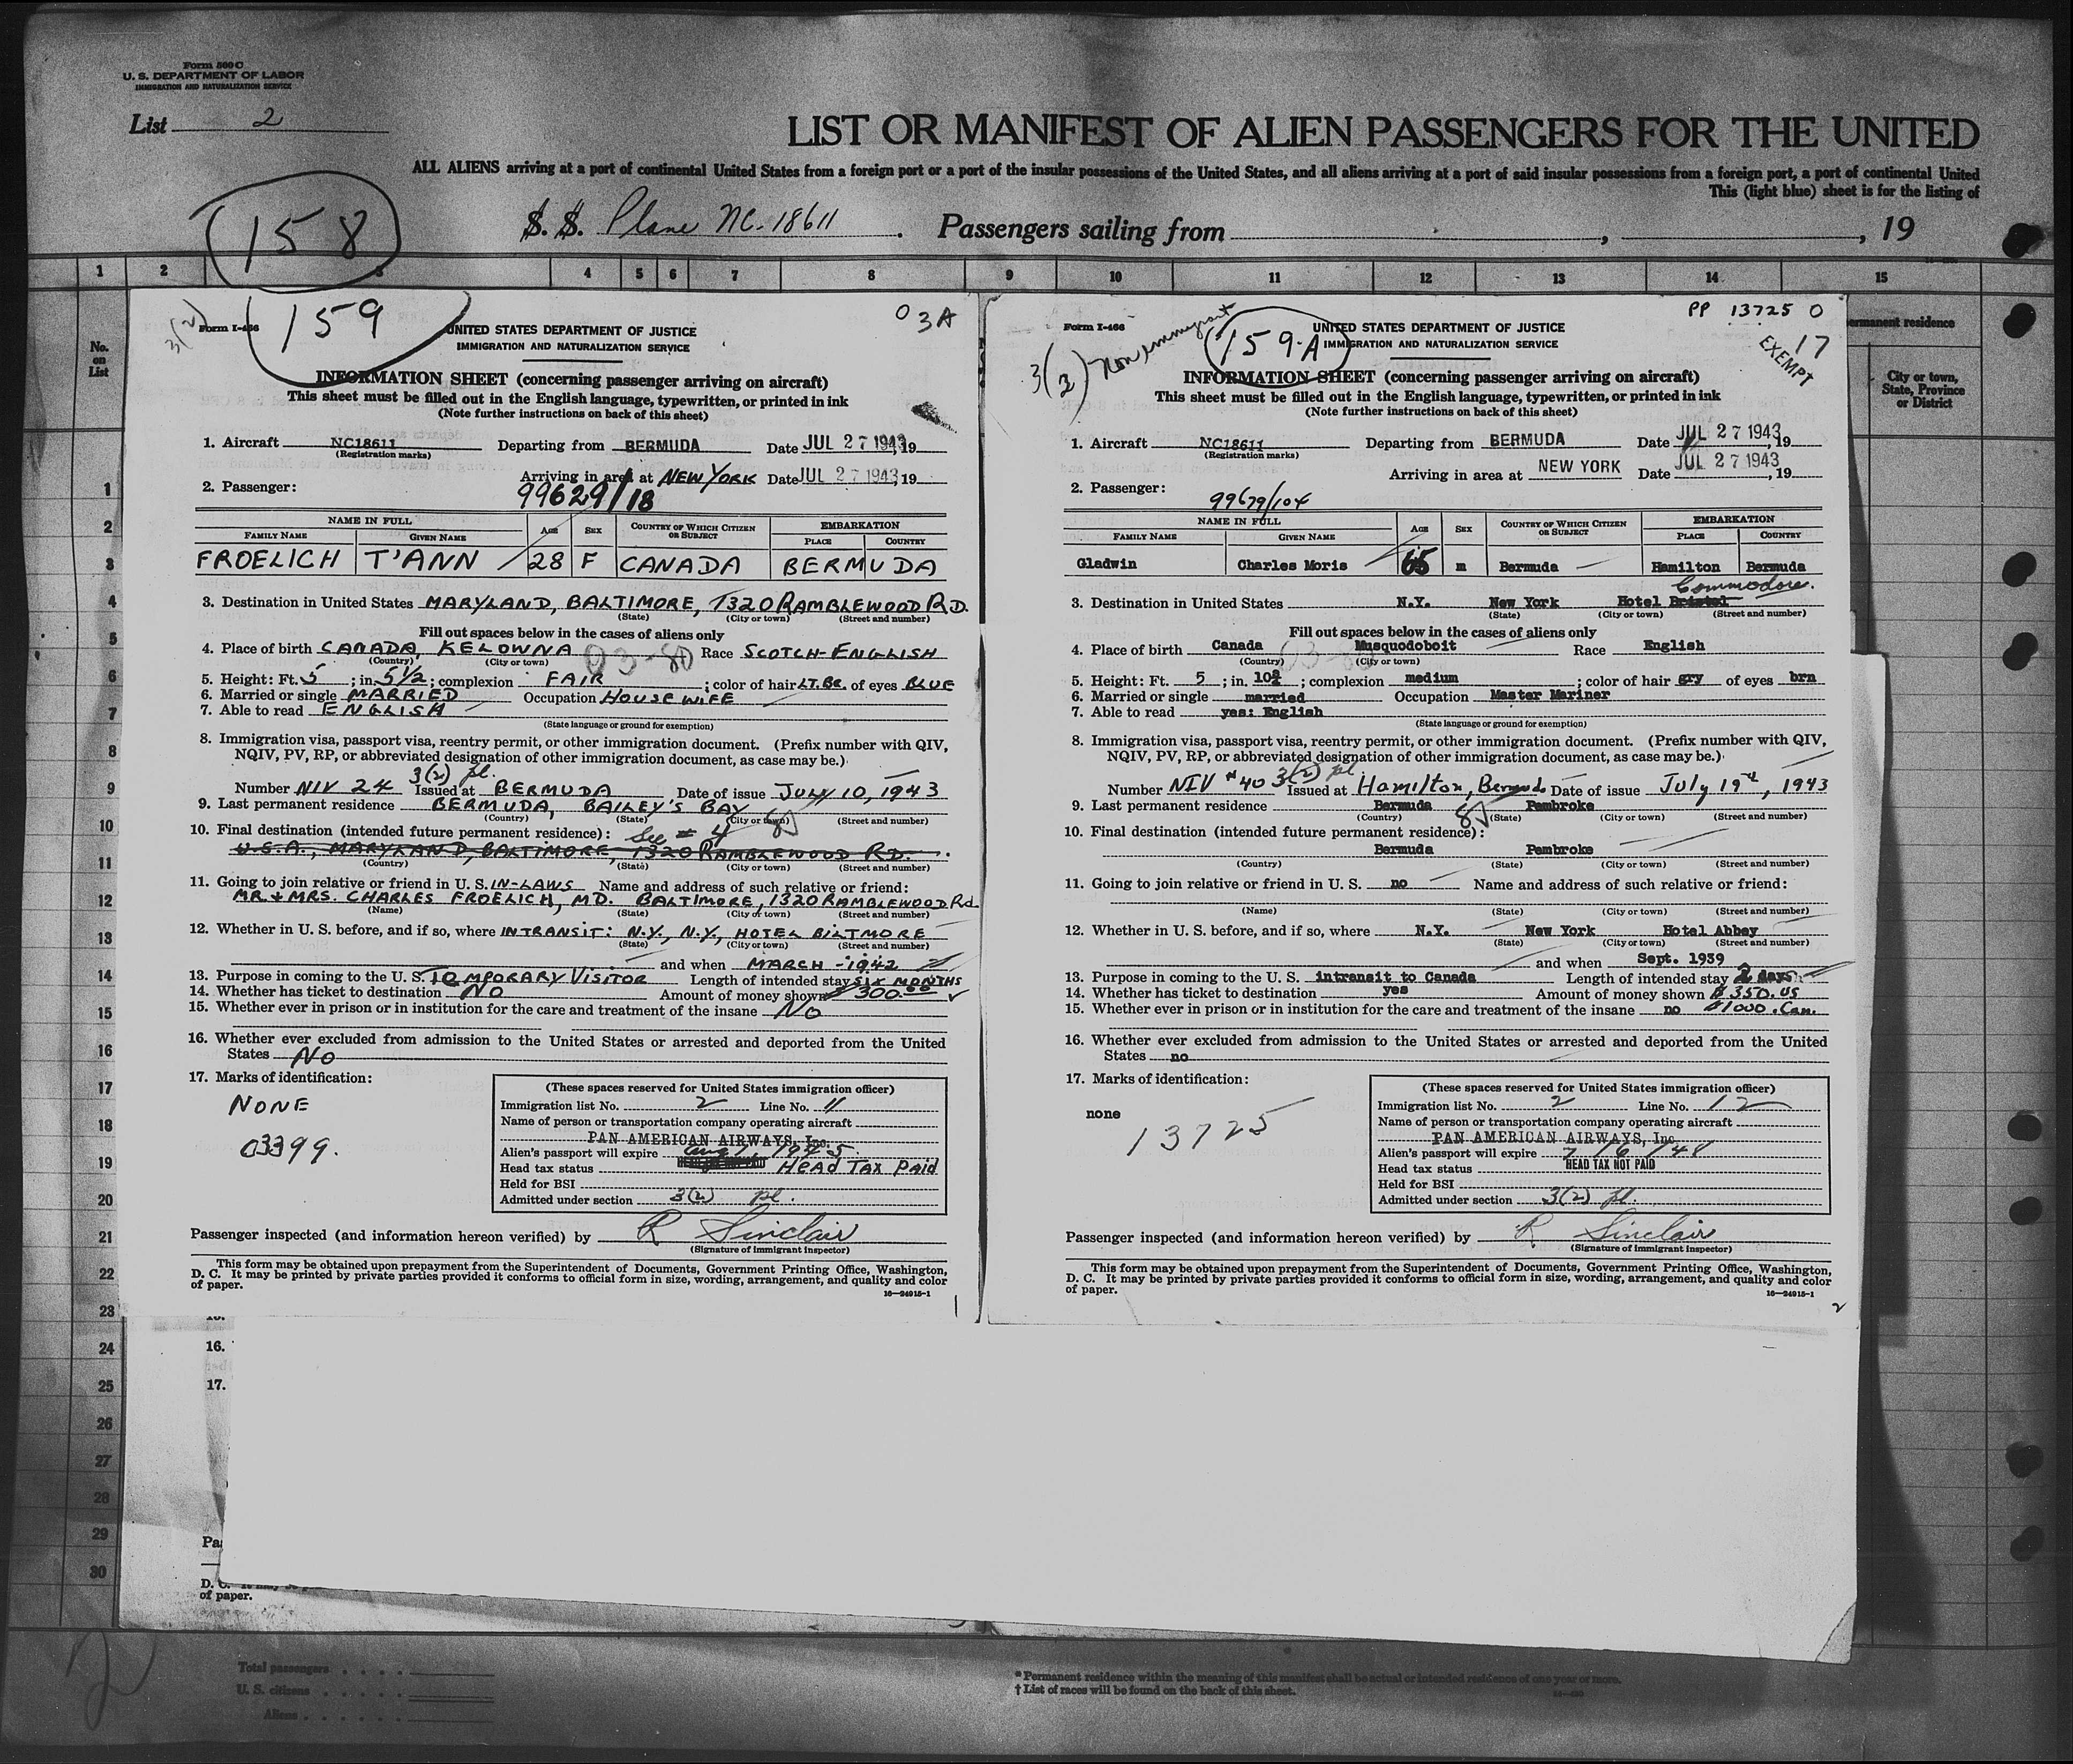 Form 500 C
U. S. DEPARTMENT OF LABOR
IMMIGRATION AND NATURALIZATION SERVICE
List 2
LIST OR MANIFEST OF ALIEN PASSENGERS FOR THE UNITED
ALL ALIENS arriving at a port of continental United States from a foreign port or a port of the insular possessions of the United States, and all aliens arriving at a port of said insular possessions from a foreign port, a port of continental United
This (light blue) sheet is for the listing of
158
S. S. Plane NC-18611. Passengers sailing from , , 19
1 2 3 4 5 6 7 8 9 10 11 12 13 14 15
No. on List
1
2
3
4
5
6
7
8
9
10
11
12
13
14
15
16
17
18
19
20
21
22
23
24
25
26
27
28
29
30
3(2)
Form I-466
159
03A
UNITED STATES DEPARTMENT OF JUSTICE
IMMIGRATION AND NATURALIZATION SERVICE
INFORMATION SHEET (concerning passenger arriving on aircraft)
This sheet must be filled out in the English language, typewritten, or printed in ink
(Note further instructions on back of this sheet)
1. Aircraft NC18611 Departing from BERMUDA Date JUL 27 1943, 19
(Registration marks)
Arriving in area at NEW YORK Date JUL 27 1943, 19
2. Passenger: 99629/18
NAME IN FULL AGE SEX COUNTRY OF WHICH CITIZEN OR SUBJECT EMBARKATION
FAMILY NAME GIVEN NAME PLACE COUNTRY
FROELICH T'ANN 28 F CANADA BERMUDA
3. Destination in United States MARYLAND, BALTIMORE, 1320 RAMBLEWOOD RD.
(State) (City or town) (Street and number)
Fill out spaces below in the cases of aliens only
4. Place of birth CANADA, KELOWNA 03-80 Race SCOTCH-ENGLISH
(Country) (City or town)
5. Height: Ft. 5; in. 5 1/2; complexion FAIR; color of hair LT. BR. of eyes BLUE
6. Married or single MARRIED Occupation HOUSEWIFE
7. Able to read ENGLISH
(State language or ground for exemption)
8. Immigration visa, passport visa, reentry permit, or other immigration document. (Prefix number with QIV,
NQIV, PV, RP, or abbreviated designation of other immigration document, as case may be.)
3(2) pl.
Number NIV 24 Issued at BERMUDA Date of issue JULY 10, 1943
9. Last permanent residence BERMUDA, BAILEY'S BAY
(Country) (State) (City or town) (Street and number)
10. Final destination (intended future permanent residence): See # 4
U.S.A., MARYLAND, BALTIMORE, 1320 RAMBLEWOOD RD.
(Country) (State) (City or town) (Street and number)
11. Going to join relative or friend in U. S. IN-LAWS Name and address of such relative or friend:
MR. & MRS. CHARLES FROELICH, MD. BALTIMORE, 1320 RAMBLEWOOD Rd.
(Name) (State) (City or town) (Street and number)
12. Whether in U. S. before, and if so, where INTRANSIT: N.Y., N.Y., HOTEL BILTMORE
(State) (City or town) (Street and number)
and when MARCH - 1942
13. Purpose in coming to the U. S. TEMPORARY VISITOR Length of intended stay SIX MONTHS
14. Whether has ticket to destination NO Amount of money shown $ 300.00
15. Whether ever in prison or in institution for the care and treatment of the insane NO
16. Whether ever excluded from admission to the United States or arrested and deported from the United
States NO
17. Marks of identification:
NONE
03399.
(These spaces reserved for United States immigration officer)
Immigration list No. 2 Line No. 11
Name of person or transportation company operating aircraft
PAN AMERICAN AIRWAYS, Inc.
Alien's passport will expire Aug 1, 1945.
Head tax status HEAD TAX PAID
Held for BSI
Admitted under section 3(2) pl.
Passenger inspected (and information hereon verified) by R Sinclair
(Signature of immigrant inspector)
This form may be obtained upon prepayment from the Superintendent of Documents, Government Printing Office, Washington,
D. C. It may be printed by private parties provided it conforms to official form in size, wording, arrangement, and quality and color
of paper.
16—24915-1
1
Form I-466
3(2) Non immigrant
159-A
PP 13725 0
17
EXEMPT
UNITED STATES DEPARTMENT OF JUSTICE
IMMIGRATION AND NATURALIZATION SERVICE
INFORMATION SHEET (concerning passenger arriving on aircraft)
This sheet must be filled out in the English language, typewritten, or printed in ink
(Note further instructions on back of this sheet)
1. Aircraft NC18611 Departing from BERMUDA Date JUL 27 1943, 19
(Registration marks)
Arriving in area at NEW YORK Date JUL 27 1943, 19
2. Passenger: 99679/104
NAME IN FULL AGE SEX COUNTRY OF WHICH CITIZEN OR SUBJECT EMBARKATION
FAMILY NAME GIVEN NAME PLACE COUNTRY
Gladwin Charles Moris 65 m Bermuda Hamilton Bermuda
Commodore.
3. Destination in United States N.Y. New York Hotel Bristol
(State) (City or town) (Street and number)
Fill out spaces below in the cases of aliens only
4. Place of birth Canada Musquodoboit Race English
(Country) (City or town)
5. Height: Ft. 5; in. 10; complexion medium; color of hair gry of eyes brn
6. Married or single married Occupation Master Mariner
7. Able to read yes: English
(State language or ground for exemption)
8. Immigration visa, passport visa, reentry permit, or other immigration document. (Prefix number with QIV,
NQIV, PV, RP, or abbreviated designation of other immigration document, as case may be.)
3(2) pl
Number NIV # 40 Issued at Hamilton, Bermuda Date of issue July 19th, 1943
9. Last permanent residence Bermuda Pembroke
(Country) (State) (City or town) (Street and number)
10. Final destination (intended future permanent residence):
Bermuda Pembroke
(Country) (State) (City or town) (Street and number)
11. Going to join relative or friend in U. S. no Name and address of such relative or friend:
(Name) (State) (City or town) (Street and number)
12. Whether in U. S. before, and if so, where N.Y. New York Hotel Abbey
(State) (City or town) (Street and number)
and when Sept. 1939
13. Purpose in coming to the U. S. intransit to Canada Length of intended stay 2 days
14. Whether has ticket to destination yes Amount of money shown $ 350. US
15. Whether ever in prison or in institution for the care and treatment of the insane no $1000. Can.
16. Whether ever excluded from admission to the United States or arrested and deported from the United
States no
17. Marks of identification:
none
13725
(These spaces reserved for United States immigration officer)
Immigration list No. 2 Line No. 12
Name of person or transportation company operating aircraft
PAN AMERICAN AIRWAYS, Inc.
Alien's passport will expire 7/6/48
Head tax status HEAD TAX NOT PAID
Held for BSI
Admitted under section 3(2) pl.
Passenger inspected (and information hereon verified) by R Sinclair
(Signature of immigrant inspector)
This form may be obtained upon prepayment from the Superintendent of Documents, Government Printing Office, Washington,
D. C. It may be printed by private parties provided it conforms to official form in size, wording, arrangement, and quality and color
of paper.
16—24915-1
2
permanent residence
City or town, State, Province or District
16.
17.
D. C.
of paper.
2
Total passengers
U. S. citizens
Aliens
* Permanent residence within the meaning of this manifest shall be actual or intended residence of one year or more.
† List of races will be found on the back of this sheet.